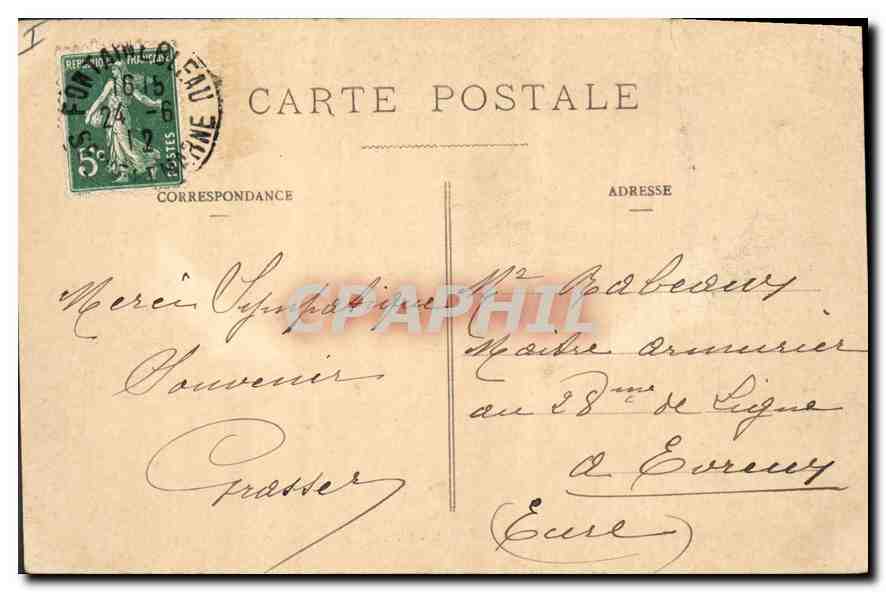 I
REPUBLIQUE FRANÇAISE
5c
POSTES
FONTAINEBLEAU
16 15
24 -6
12
CARTE POSTALE
CORRESPONDANCE
ADRESSE
Merci Sympatique
Souvenir
Grasser
Mr Rabeaux
Maitre armurier
au 28me de Ligne
a Evreux
(Eure)
CPAPHIL